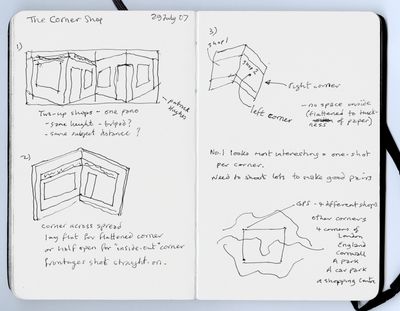 The Corner Shop
29 July 07
1)
Two-up shops - one pano
- same height - tripod?
- same subject distance?
patrick
Hughes
2)
corner across spread
lay flat for flattened corner
or half open for "inside-out" corner
frontages shot straight-on.
3)
shop 1
shop 2
right corner
left corner
- no space inside
(flattened to thick-
ness of paper)
No.1 looks most interesting - one-shot
per corner.
Need to shoot lots to make good pairs
GPS - 4 different shops
other corners
4 corners of
London
England
Cornwall
A park
A car park
a shopping centre